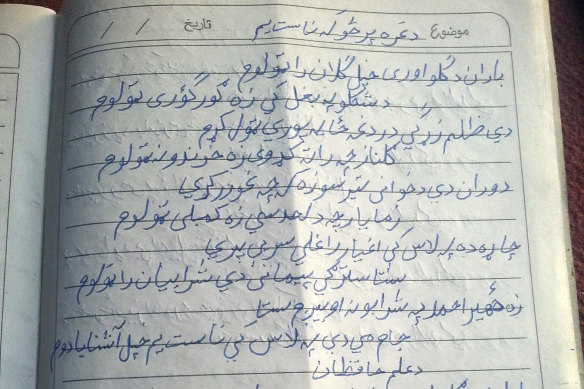 موضوع دغره پر څوکه ناست یم تاریخ / /
باران د ګلو اوری خپل ګلان راټولوم
د شګو په بغل کی زه ګورګوری ټولوم
دی ظالم زړګي در دغه ځایه پوری ټول کړم
ګلناز چه راته کړوی زه خوندونه ټولوم
دوران دی د ځوانی تیر شو زه که چه غوږ کړي
زما یار چه د لحد سي زه کمبلی ټولوم
چاړه ده په لاس کی اغیار راغلي سر می پری
ستا سترګی پیمانی دي شرابیان راټولوم
زه ظهیر احمد په شرابو نه اوبیږم ستا
جام می دی په لاس کی ناست یم خپل آشنا یادوم
د علم حافظان